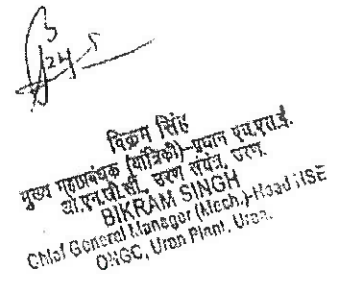 विक्रम सिंह
मुख्य महाप्रबंधक (यांत्रिकी)-प्रधान एच.एस.ई.
ओ.एन.जी.सी., उरण संयंत्र, उरण.
BIKRAM SINGH
Chief General Manager (Mech.)-Head HSE
ONGC, Uran Plant, Uran.